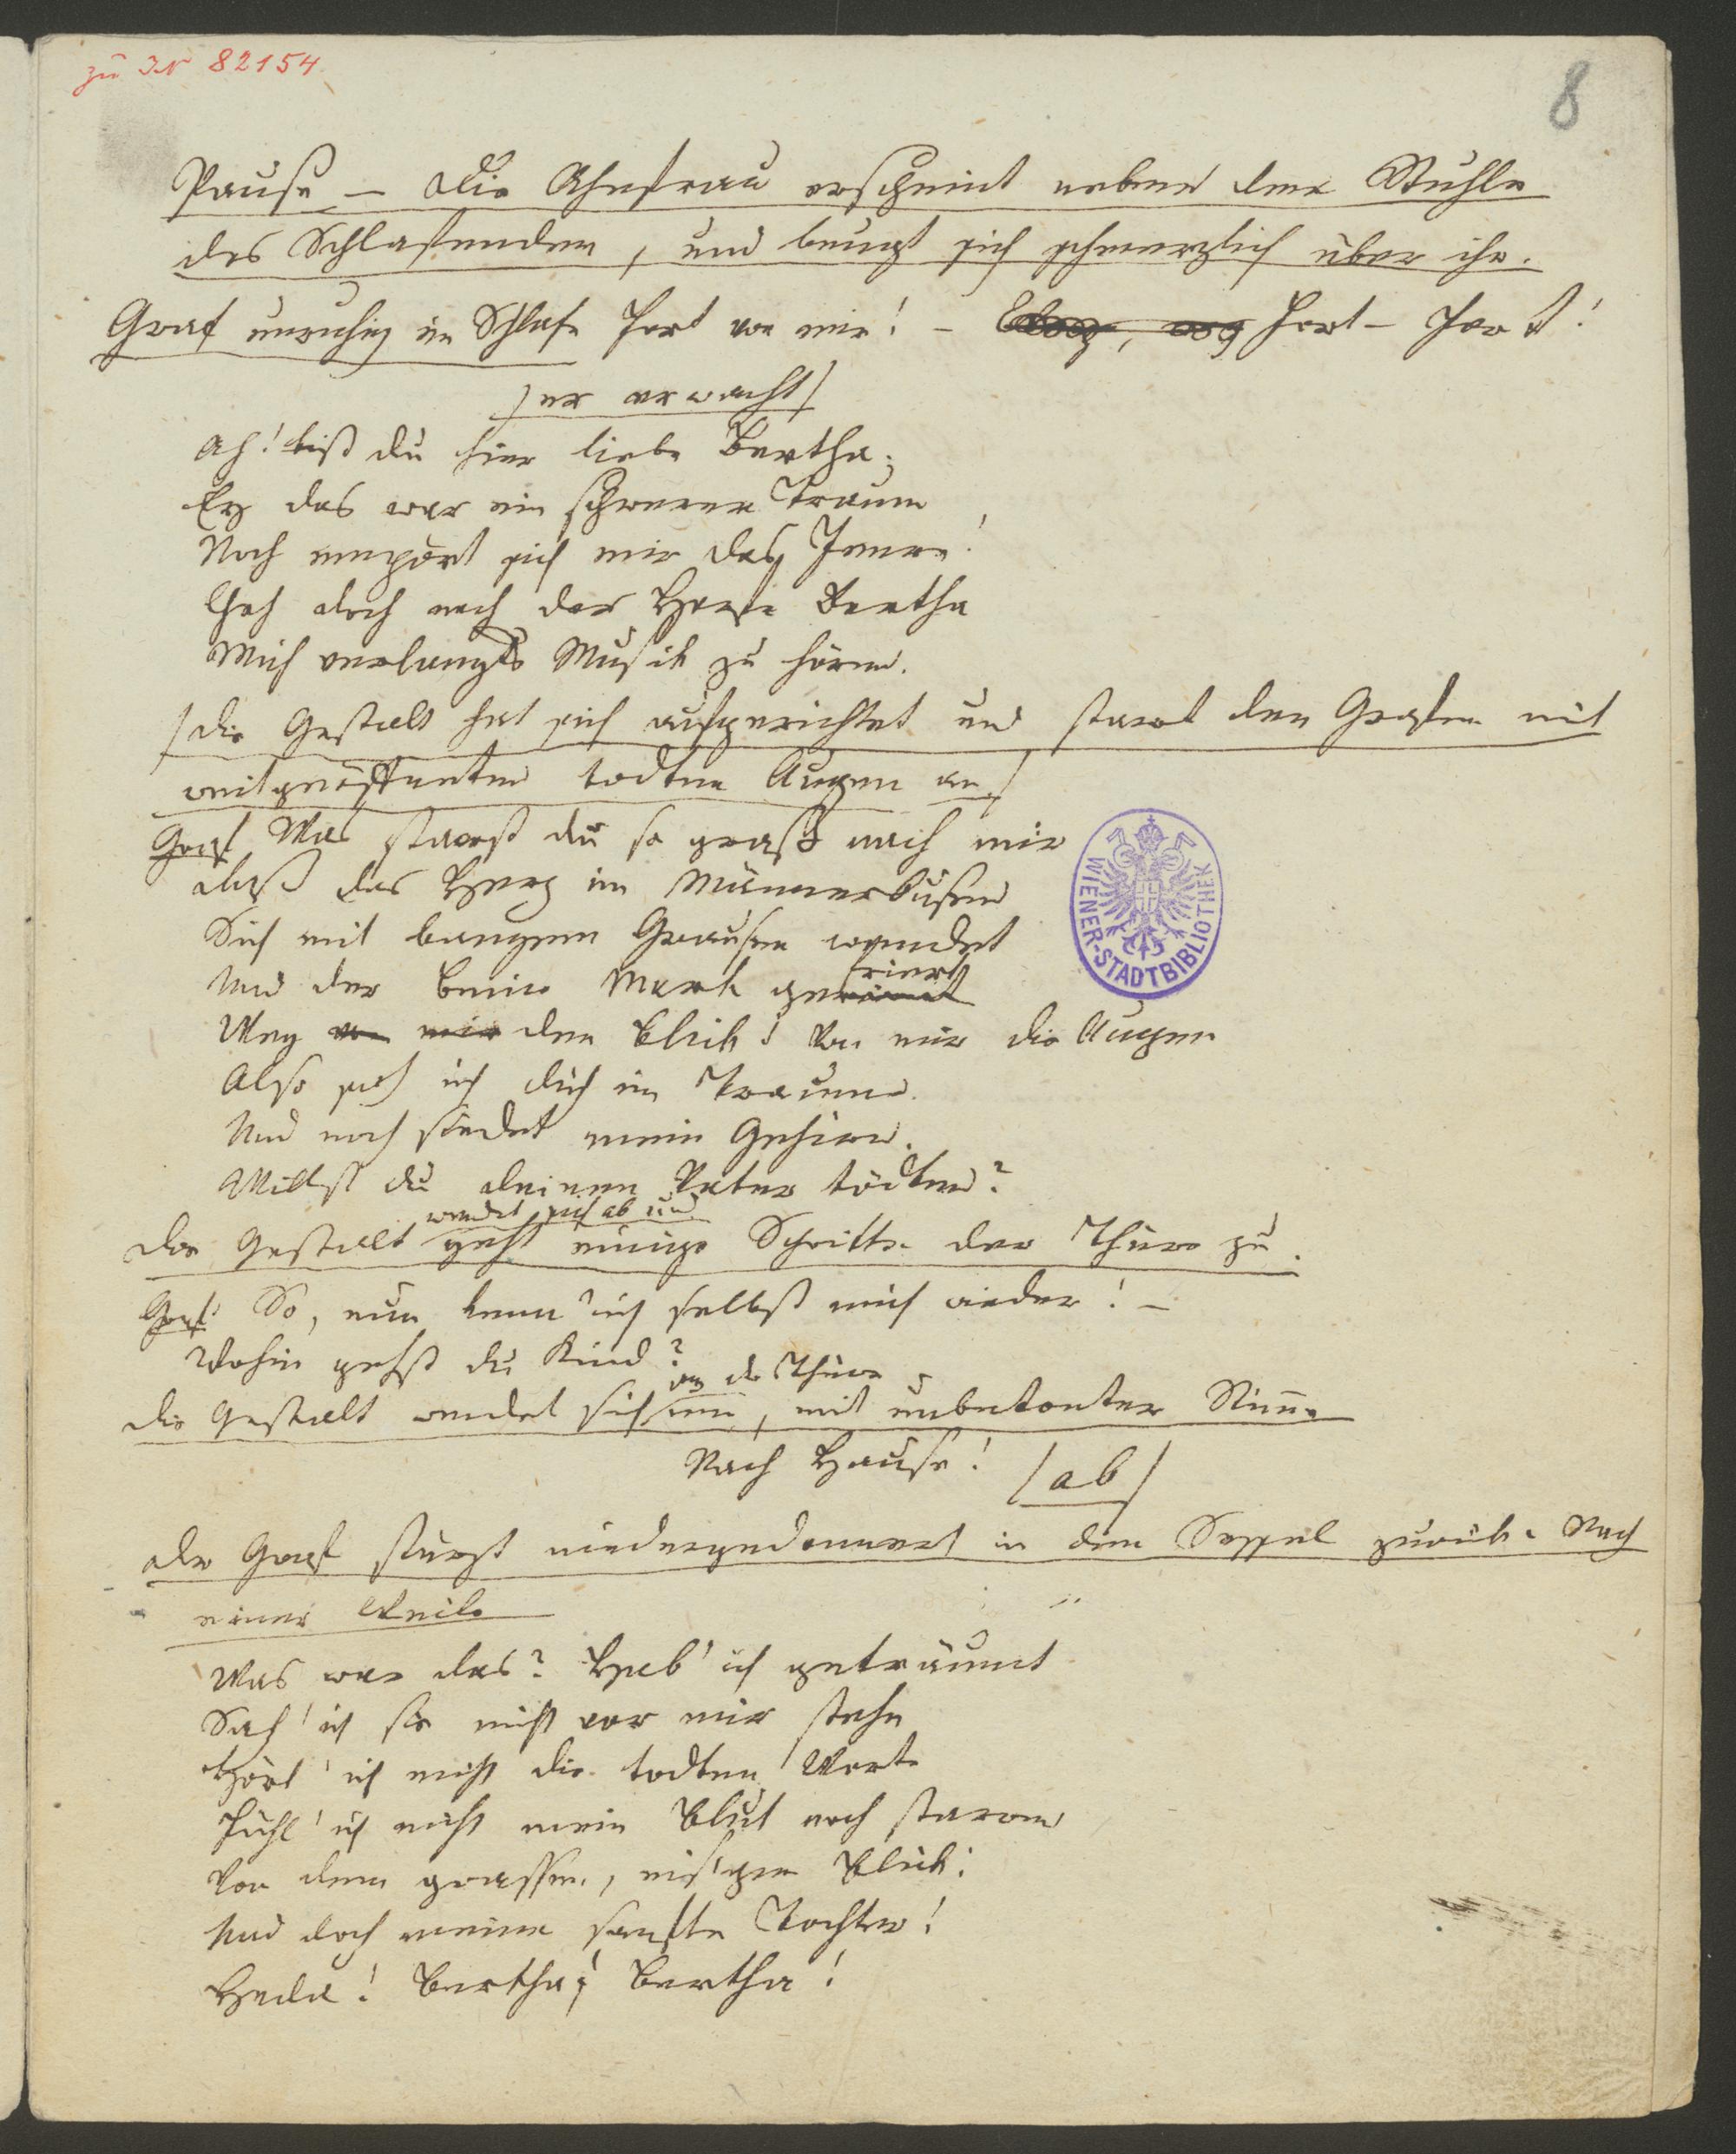 zu IN 82154.
8
Pause – Die Ahnfrau erscheint neben dem Stuhle
des Schlafenden, und beugt sich schmerzlich über ihn.
Graf unruhig im Schlafe Fort von mir! – Fort – Fort!
/er erwacht/
Ah! bist du hier liebe Bertha.
Ey das war ein schwerer Traum
Noch empört sich mir das Innre!
Geh doch nach der Harfe Bertha
Mich verlangts Musik zu hören.
/die Gestalt hat sich aufgerichtet und starrt den Grafen mit
weitgeöffneten todten Augen an/
Graf Was starrst du so graß nach mir
daß das Herz im Männerbusen
Sich mit bangem Grausen wendet
Und der Beine Mark gerinnt
friert
Weg von mir den Blick! Von mir die Augen
Also sah ich dich im Traume.
Und noch siedet mein Gehirn.
Willst du deinen Vater tödten?
wendet sich ab und
die Gestalt geht einige Schritte der Thüre zu.
Graf: So, nun kenn' ich selbst mich wieder! –
Wohin gehst du Kind?
an der Thüre
die Gestalt wendet sich um, mit unbetonter Stimme
Nach Hause! /ab/
der Graf stürzt niedergedonnert in den Sessel zurük. Nach
einer Weile
Was war das? Hab' ich geträumt
Sah' ich sie nicht vor mir stehn
Hört' ich nicht die todten Worte
Fühl' ich nicht mein Blut noch starren
Von dem grassen, eis'gen Blick:
Und doch meine sanfte Tochter!
Heda! Bertha! Bertha!
WIENER-STADTBIBLIOTHEK